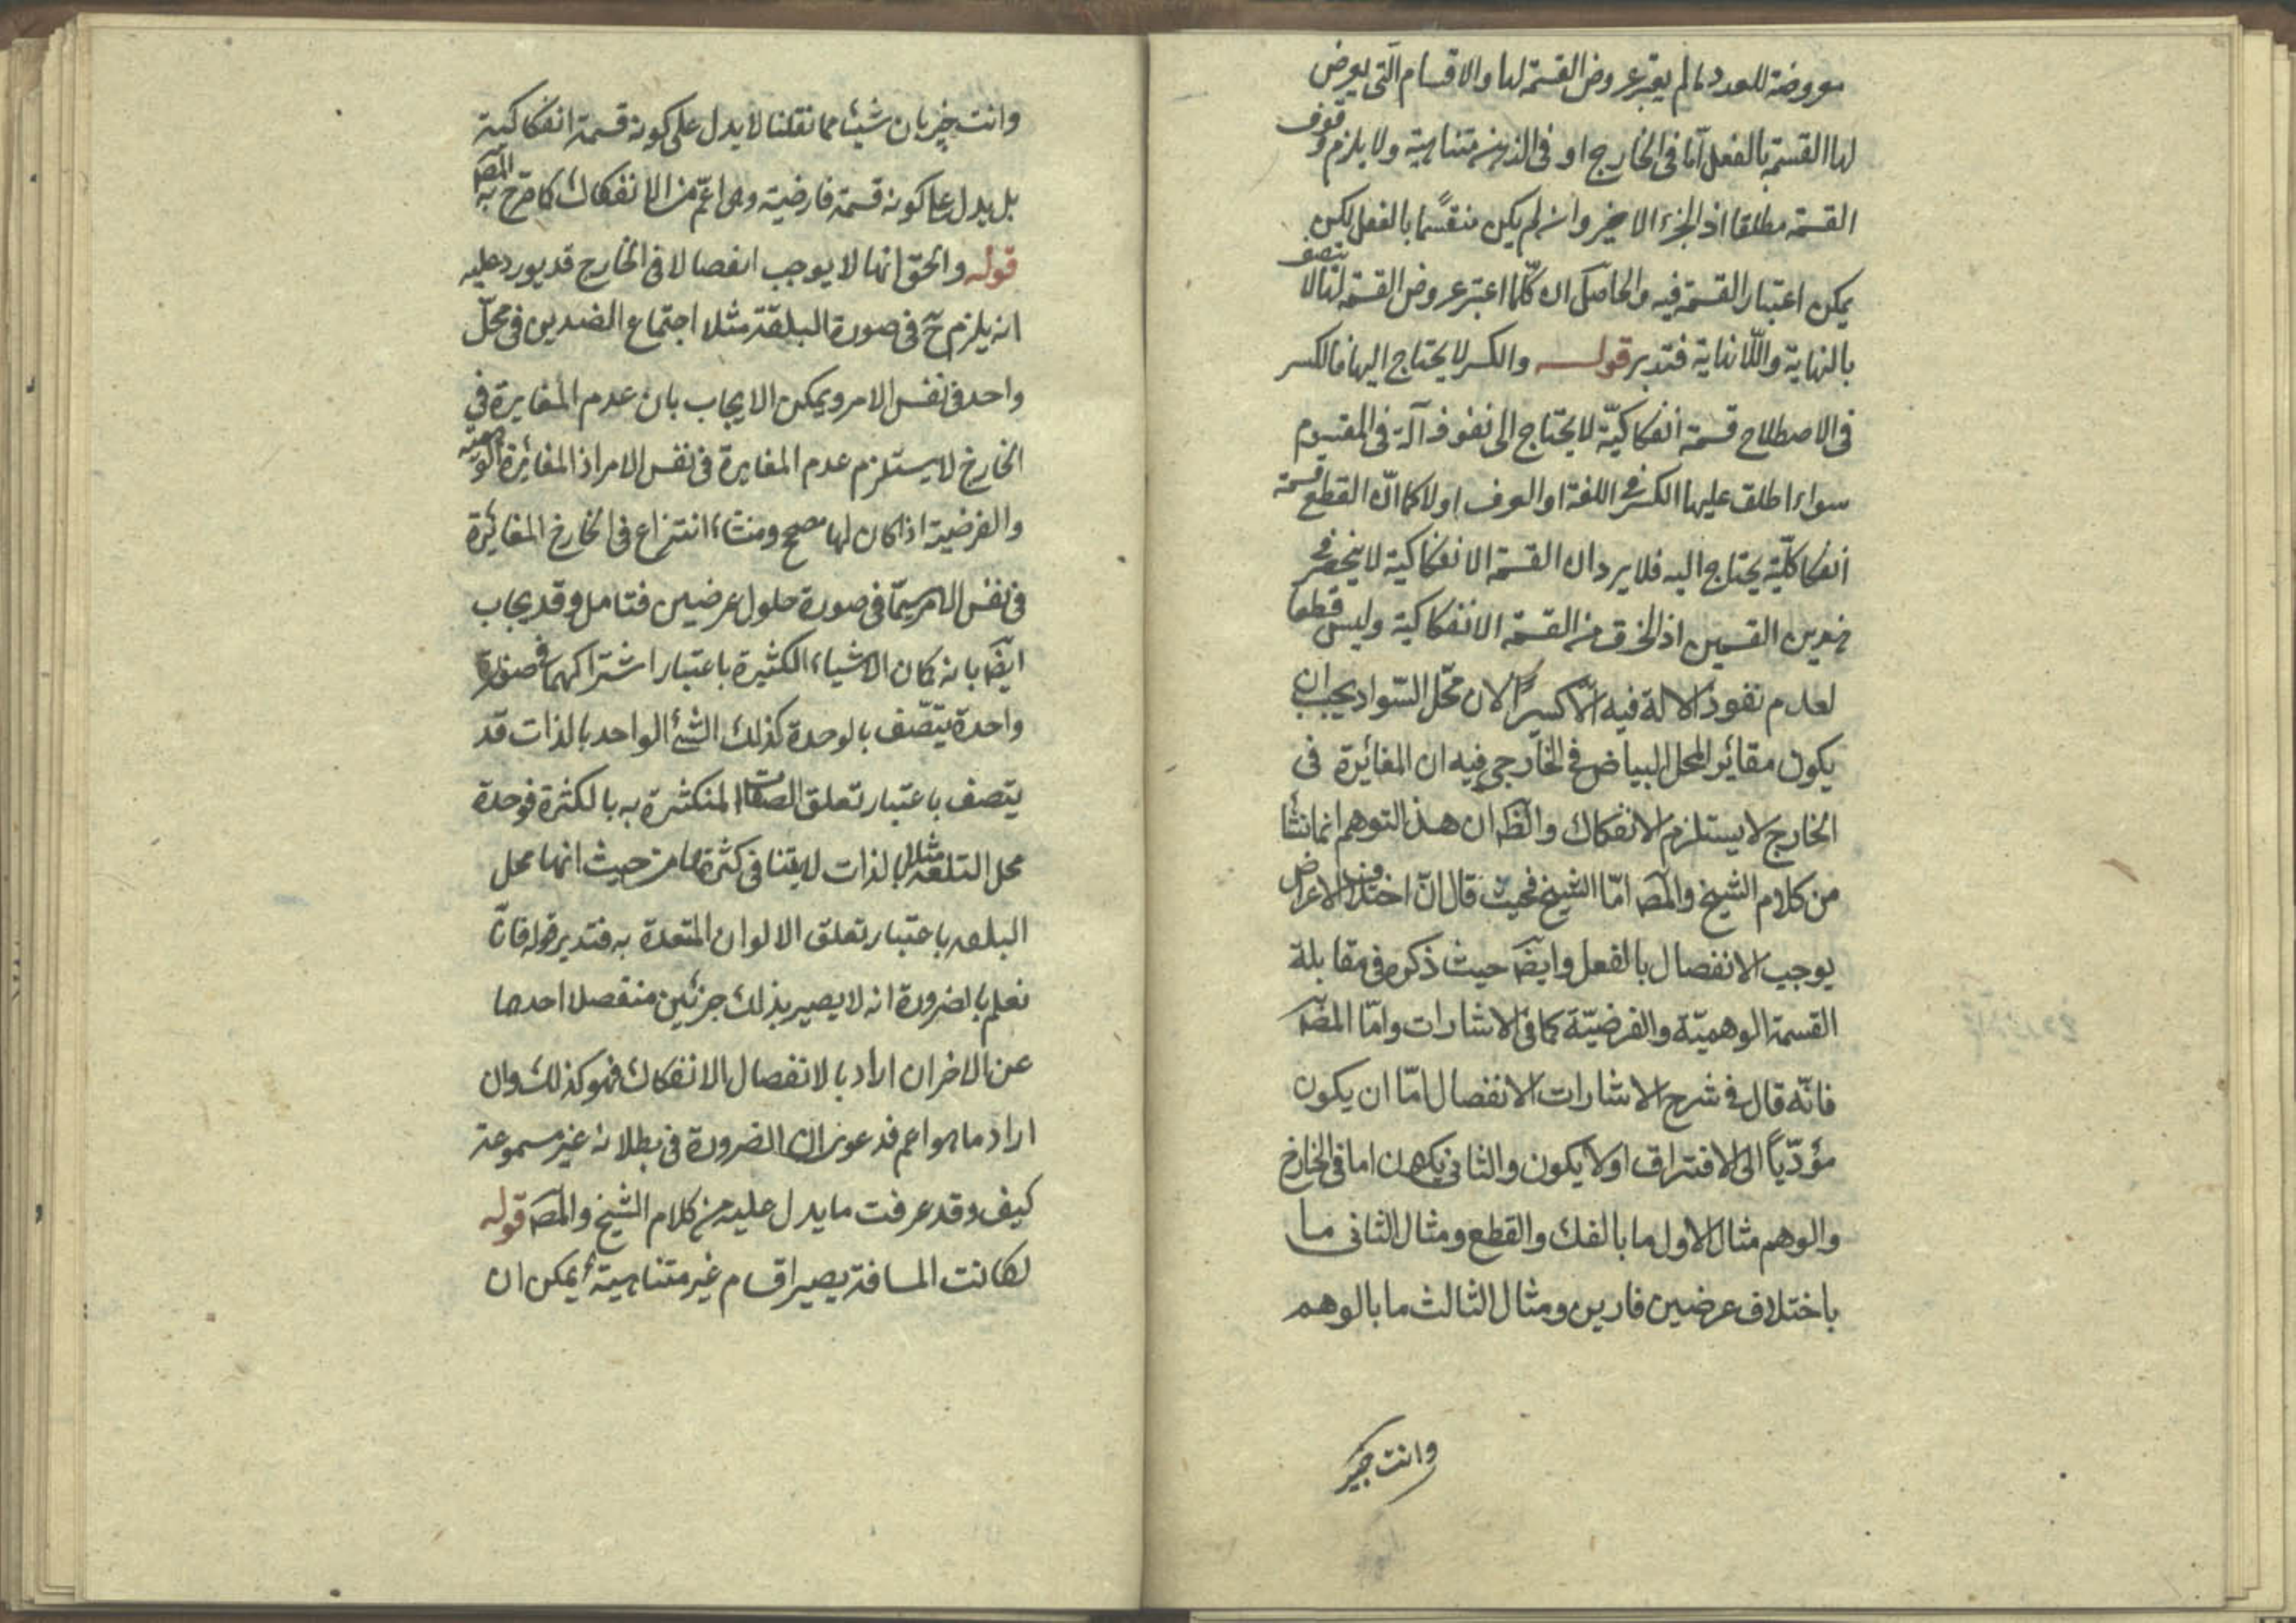 معروضة للعدد ما لم يعتبر عروض القسمة لها والاقسام التى يعرض
لها القسمة بالفعل اما فى الخارج او فى الذهن متناهية ولا يلزم وقوف
القسمة مطلقا اذ الجزء الاخير وان لم يكن منقسما بالفعل لكن
يمكن اعتبار القسمة فيه والحاصل ان كلّما اعتبر عروض القسمة لها لا يتصف
بالنهاية واللانهاية فتدبر قولـــه والكسر لا يحتاج اليها فالكسر
فى الاصطلاح قسمة انفكاكيّة لا يحتاج الى نفوذ آلة فى المقسوم
سواء اطلق عليها الكسر فى اللغة او العرف او لا كما انّ القطع قسمة
انفكاكيّة يحتاج اليه فلا يرد ان القسمة الانفكاكية لا ينحصر فى
هذين القسمين اذ الخرق من القسمة الانفكاكية وليس قطعا
لعدم نفوذ الالة فيه الا كسرًا لان محّل السّواد يجب ان
يكون مقائر المحل البياض فى الخارجى فيه ان المغائرة فى
الخارج لا يستلزم الانفكاك والظ ان هذ التوهم انما نشأ
من كلام الشيخ والمص امّا الشيخ فحيث قال انّ اختلاف الاعراض
يوجب الانفصال بالفعل وايضَ حيث ذكره فى مقابلة
القسمة الوهميّة والفرضيّة كما فى الاشارات وامّا المص
فانّه قال فى شرح الاشارات الانفصال امّا ان يكون
مؤدّياً الى الافتراق او لا يكون والثانى يكون اما فى الخارج
والوهم مثال الاول ما بالفك والقطع ومثال الثانى ما
باختلاف عرضين فارين ومثال الثالث ما بالوهم
وانت خبير
وانت خبير بان شيئا مما نقلنا لا يدل على كونه قسمة انفكاكية
بل يدل على كونه قسمة فارضية وهى اعّم من الانفكاك كما صرّح به المص
قوله والحق انها لا يوجب انفصالا فى الخارج قد يورد عليه
انه يلزم ح فى صورة البلقة مثلا اجتماع الضدين فى محلّ
واحد فى نفس الامر ويمكن الايجاب بان عدم المغايرة فى
الخارج لا يستلزم عدم المغايرة فى نفس الامر اذ المغائرة الوهمية
والفرضية اذا كان لها مصحح ومنشاء انتزاع فى الخارج المغائرة
فى نفس الامر سيّما فى صورة حلول عرضين فتامل وقد يجاب
ايضَ بانه كان الاشياء الكثيرة باعتبار اشتراكهما فى صفة
واحدة يتّصف بالوحدة كذلك الشئ الواحد بالذات قد
يتصف باعتبار تعلق الصفات المتكثرة به بالكثرة فوحدة
محل البلقة مثلا بالذات لا ينافى كثرتها من حيث انها محل
البلقه باعتبار تعلق الالوان المتعددة به فتدبر قوله فانّا
نعلم بالضرورة انه لا يصير بذلك جزئين منفصل احدهما
عن الاخر ان اراد بالانفصال الانفكاك فهو كذلك وان
اراد ما هو اعم فدعوى ان الضرورة فى بطلانه غير مسموعة
كيف وقد عرفت ما يدل عليه من كلام الشيخ والمص قوله
لكانت المسافة يصير اقسام غير متناهية يمكن ان